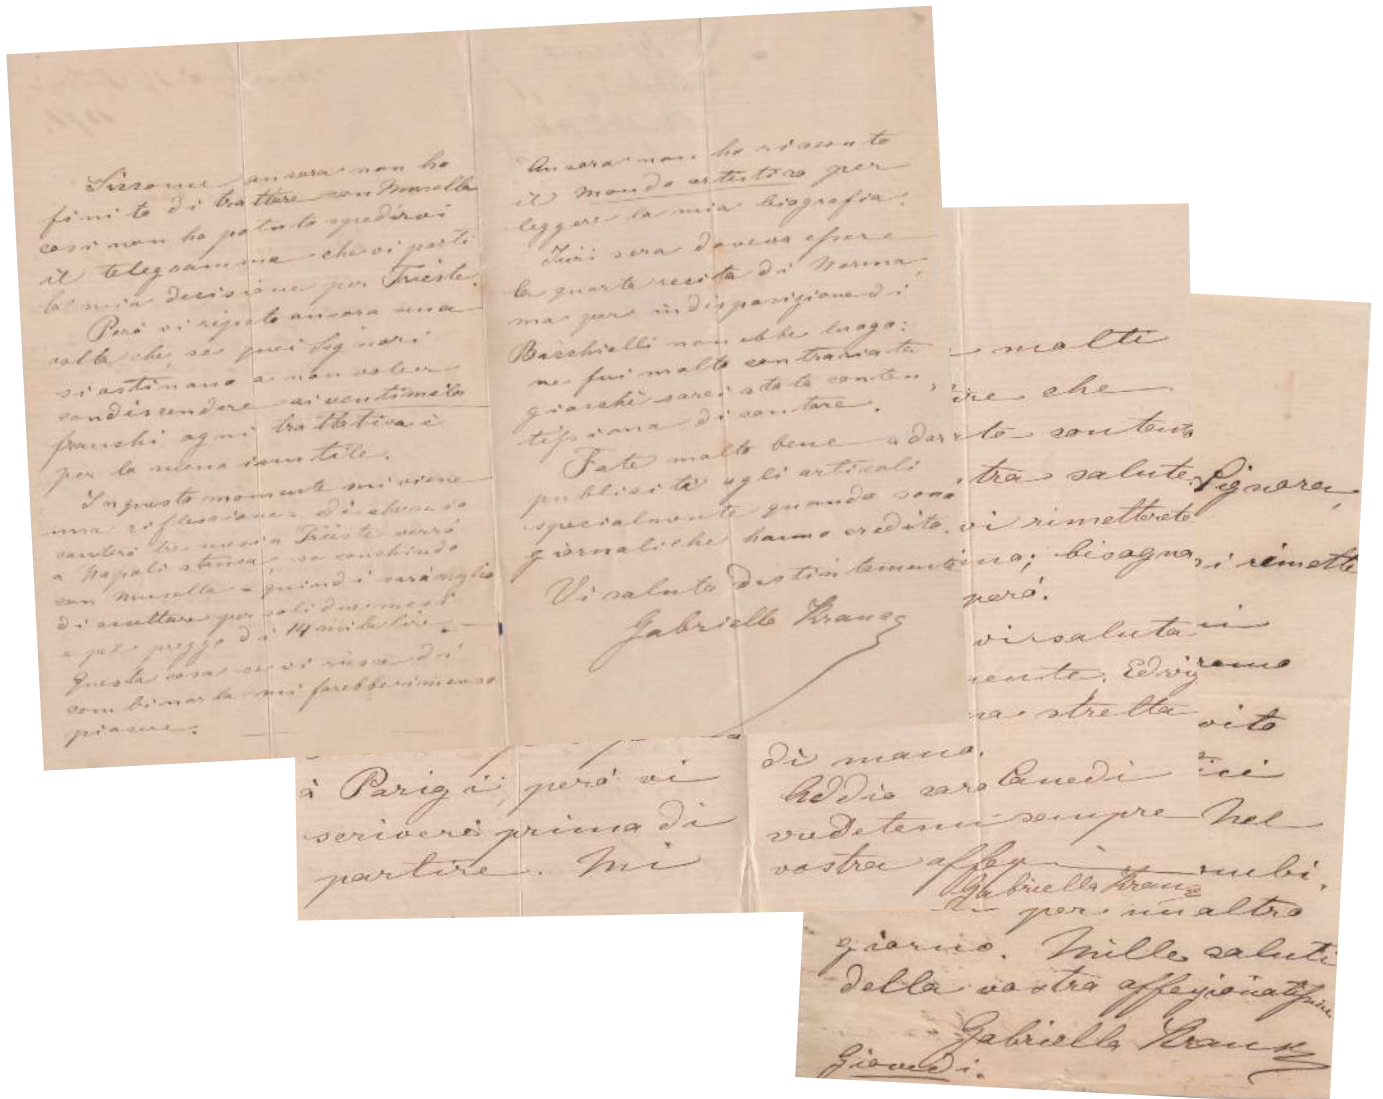 Sizzome ancora non ho
finito di trattare con Musella
così non ho potuto spedirvi
il telegramma che vi porti
la mia decisione per Trieste.
Però vi ripeto ancora una
volta che se quei Signori
si ostinano a non voler
condissendere ai ventimila
franchi ogni trattativa è
per lo meno inutile.
In questo momento mi viene
una riflessione. Di che se io
canterò tre mesi a Trieste verrò
a Napoli stanca, se conchiudo
con Musella - quindi sarà meglio
di accettare per soli due mesi
e pel prezzo di 14 mila lire.
Questa cosa se vi riesce di
combinarla mi farebbe immenso
piacere.
Ancora non ho ricevuto
il Mondo artistico per
leggere la mia biografia.
Jeri sera doveva essere
la quarta recita di Norma,
ma per indisposizione di
Bacchielli non ebbe luogo:
ne fui molto contrariata
giacchè sarei stata conten
tissima di cantare.
Fate molto bene a dar
publicità agli articoli
specialmente quando sono
giornali che hanno credito.
Vi saluto distintamente
Gabriella Krauss
à Parigi, però vi
scriverò prima di
partire. Mi
molti
che
contento
tra salute
vi rimetterete
bisogna
però.
vi saluta
Edvig
stretta
di mano.
Addio caro Canedi
credetemi sempre
vostra
Gabriella Krauss
Signora,
rimette
vito
Nel
per un altro
giorno. Mille saluti
della vostra affezionatissima
Gabriella Krauss
Giovedì.